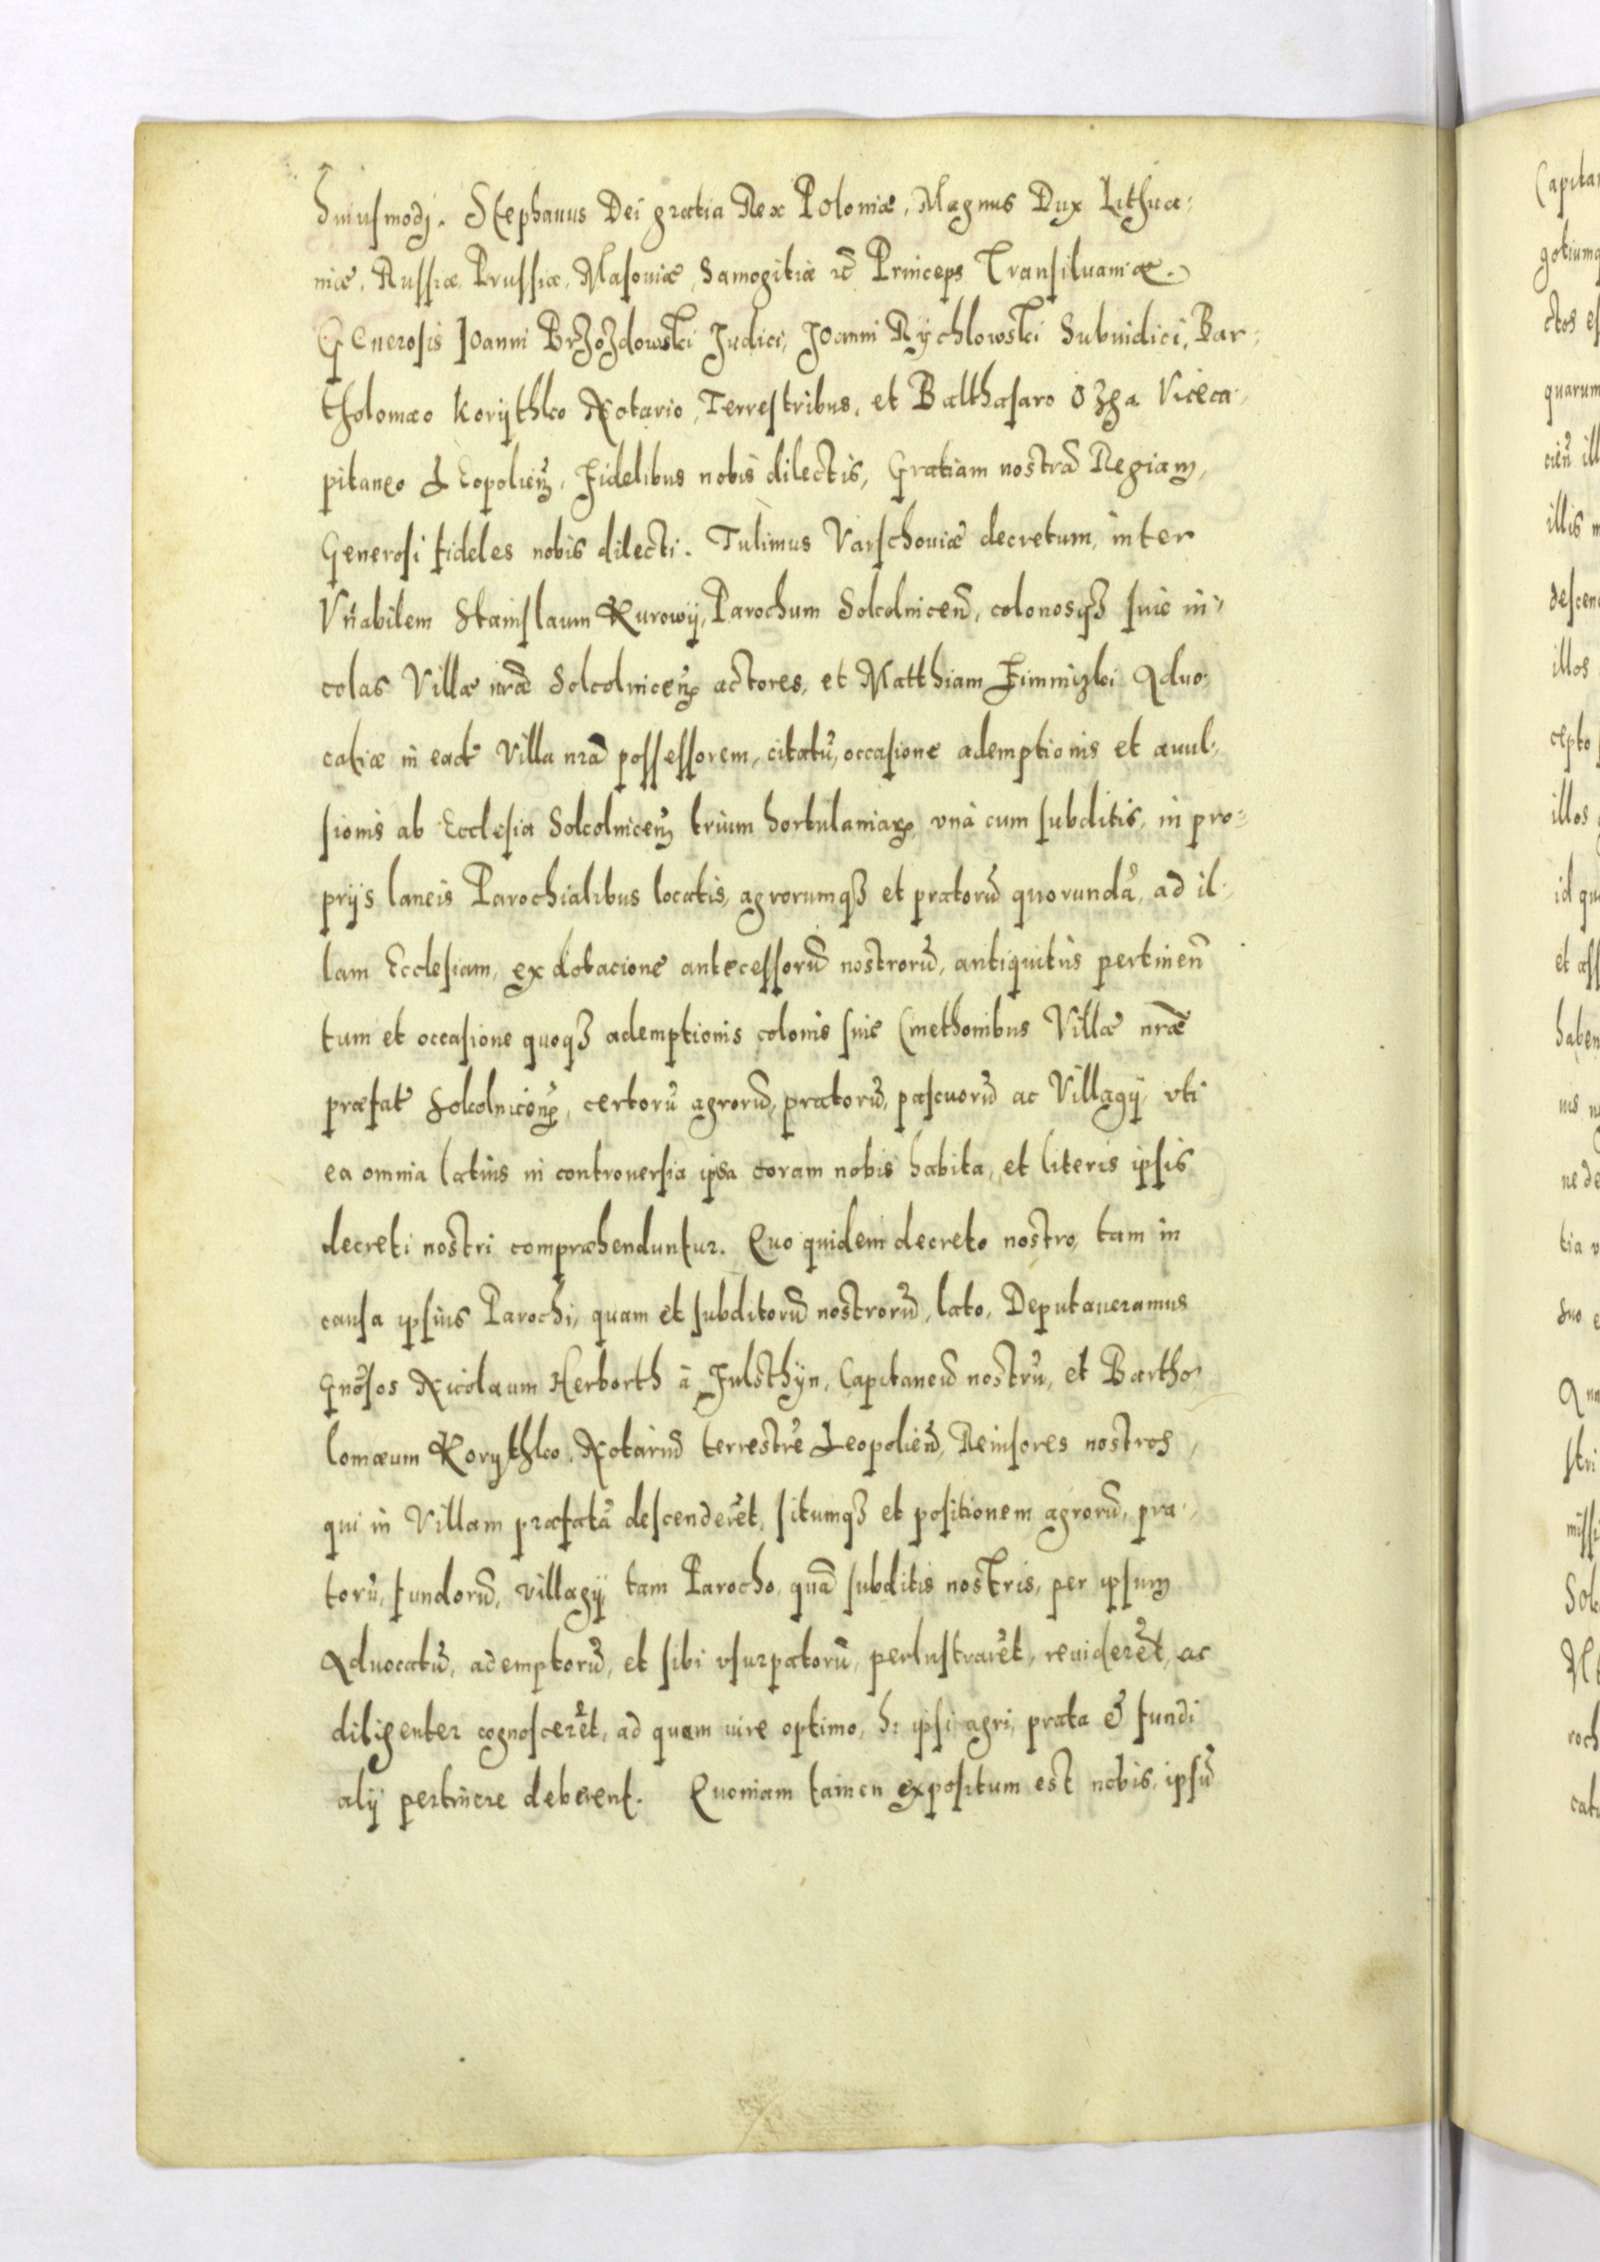 huiusmodj. Stephanus Dei gratia Rex Poloniæ, Magnus Dux Lithua-
niæ, Russiæ, Prussiæ, Masouiæ, Samogitiæ ꝛc̃ Princeps Transiluaniæ.
GEnerosis Joanni Brzozdowski Judici, Joanni Rÿchlowski Subiudici, Bar-
tholomæo Korÿthko Notario, Terrestribus, et Balthasaro Ozga Viceca-
pitaneo Leopolieñ, Fidelibus nobis dilectis, Gratiam nostrã Regiam,
Generosi fideles nobis dilecti. Tulimus Varschouiæ decretum, inter
Vñabilem Stanislaum Kurowÿ, Parochum Solcolniceñ, colonosqꝫ siue in-
colas Villæ nr̃æ Solcolniceñ actores, et Matthiam Aduo-
catiæ in ead̃ Villa nrã possessorem, citatũ, occasione ademptionis et auul-
sionis ab Ecclesia Solcolniceñ trium hortulaniarꝝ, vnà cum subditis, in pro-
prijs laneis Parochialibus locatis, agrorumqꝫ et pratorũ quorundã, ad il-
lam Ecclesiam, ex dotacione antecessorũ nostrorũ, antiquitùs pertineñ
tum et occasione quoqꝫ ademptionis colonis siue Cmethonibus Villæ nræ̃
præfat̃ Solcolniceñ, certorũ agrorũ, pratorũ, pascuorũ ac Villagij, vti
ea omnia latius in controuersia ipsa coram nobis habita, et literis ipsis
decreti nostri compræhenduntur. Quo quidem decreto nostro, tam in
causa ipsius Parochi, quam et subditorũ nostrorũ, lato, Deputaueramus
Gnõsos Nicolaum Herborth à Fulsthÿn, Capitaneũ nostrũ, et Bartho-
lomæum Korythko, Notariũ terrestrẽ Leopolieñ, Reuisores nostros,
qui in Villam præfatã descenderẽt, situmqꝫ et positionem agrorũ, pra-
torũ, fundorũ, villagij, tam Parocho, quã subditis nostris, per ipsum
Aduocatũ, ademptorũ, et sibi vsurpatorũ, perlustrarẽt, reuiderẽt, ac
diligenter cognoscerẽt, ad quem iure optimo, hi ipsi agri, prata & fundi
alij pertinere deberent. Quoniam tamen expositum est nobis, ipsũ